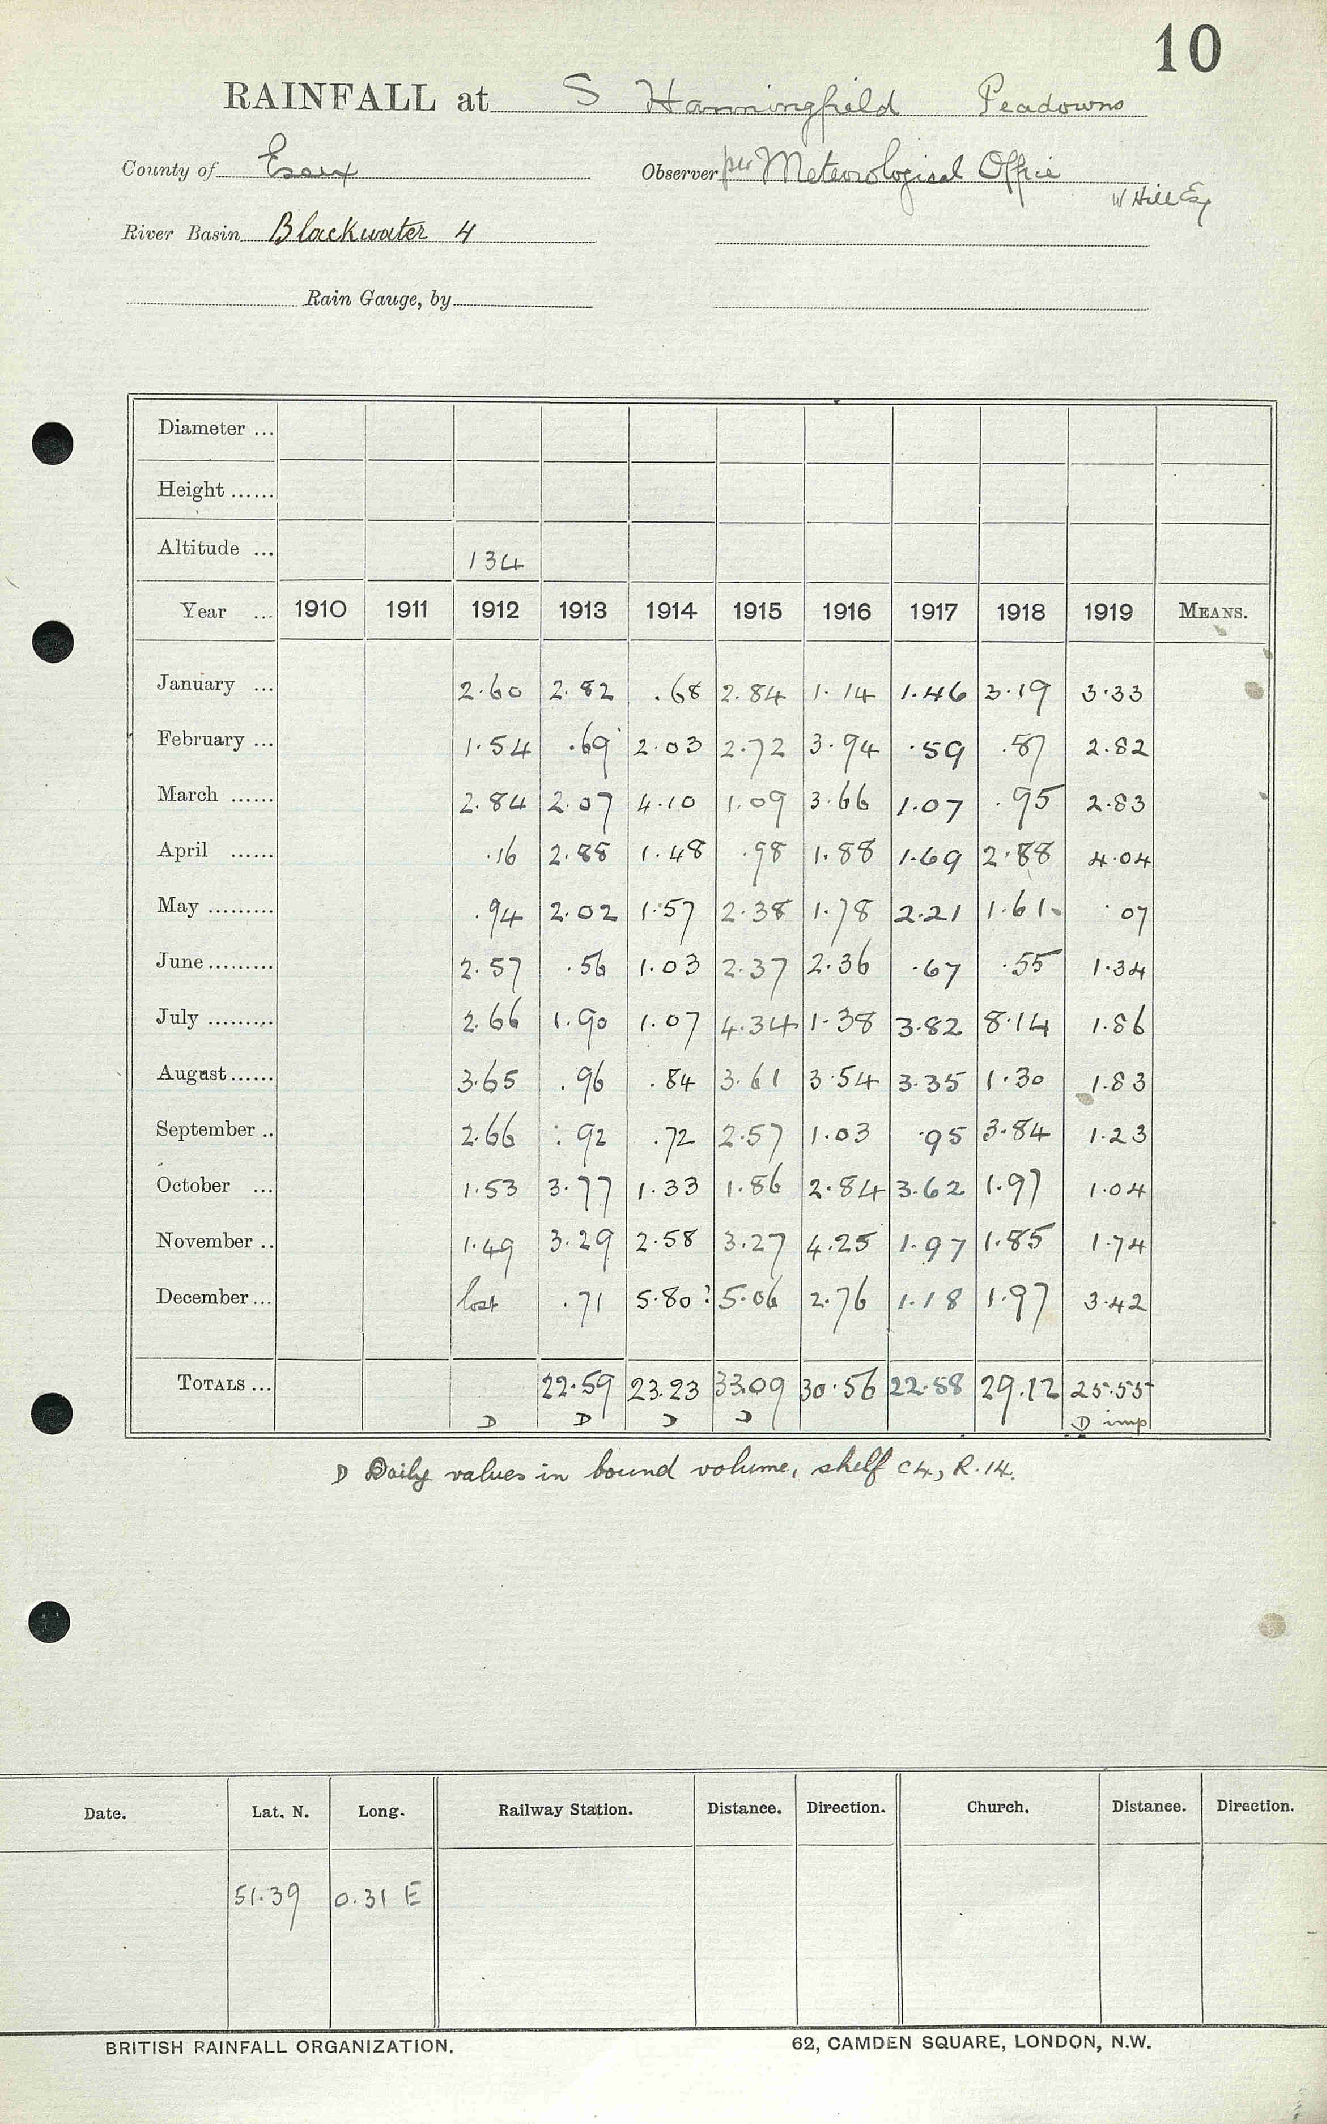 10
RAINFALL at S Hanningfield Peadowns
County of Essex Observer per Meteorological Office
W Hill Esq
River Basin Blackwater 4
Rain Gauge, by
Diameter ...
Height ......
Altitude ... 134
Year ... 1910 1911 1912 1913 1914 1915 1916 1917 1918 1919 MEANS.
January ... 2.60 2.82 .68 2.84 1.14 1.46 3.19 3.33
February ... 1.54 .69 2.03 2.72 3.94 .59 .87 2.82
March ...... 2.84 2.07 4.10 1.09 3.66 1.07 .95 2.83
April ...... .16 2.88 1.48 .98 1.88 1.69 2.88 4.04
May ......... .94 2.02 1.57 2.38 1.78 2.21 1.61 .07
June ......... 2.57 .56 1.03 2.37 2.36 .67 .55 1.34
July ......... 2.66 1.90 1.07 4.34 1.38 3.82 8.14 1.86
August ...... 3.65 .96 .84 3.61 3.54 3.35 1.30 1.83
September .. 2.66 .92 .72 2.57 1.03 .95 3.84 1.23
October ... 1.53 3.77 1.33 1.86 2.84 3.62 1.97 1.04
November .. 1.49 3.29 2.58 3.27 4.25 1.97 1.85 1.74
December ... lost .71 5.80? 5.06 2.76 1.18 1.97 3.42
TOTALS ... 22.59 23.23 33.09 30.56 22.58 29.12 25.55
D D D D D imp
D Daily values in bound volume, shelf C4, R.14.
Date. Lat. N. Long. Railway Station. Distance. Direction. Church. Distance. Direction.
51.39 0.31 E
BRITISH RAINFALL ORGANIZATION. 62, CAMDEN SQUARE, LONDON, N.W.